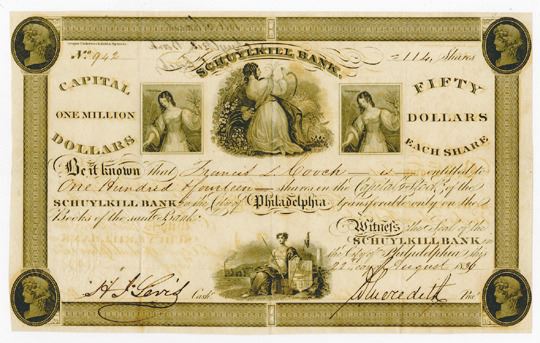 No. 942
SCHUYLKILL BANK.
114 Shares
CAPITAL
ONE MILLION
DOLLARS
FIFTY
DOLLARS
EACH SHARE
Be it known that Francis L. Cooch is entitled to
One Hundred & fourteen shares in the Capital Stock of the
SCHUYLKILL BANK in the City of Philadelphia transferable only on the
Books of the said Bank.
Witness the Seal of the
SCHUYLKILL BANK in
the City of Philadelphia this
22 day of August 1836
H J Levis Cash.
Wm Meredith Pst.